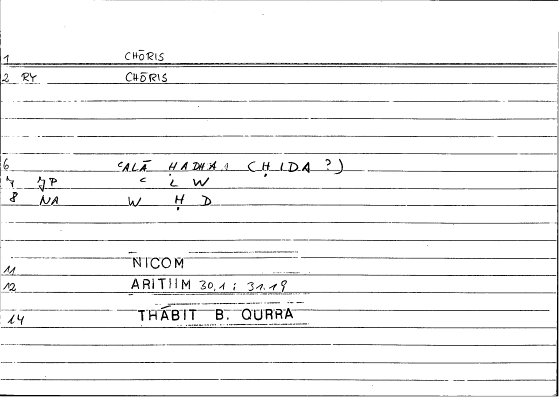 1 CHŌRIS
2 RY CHŌRIS
6 ʿALĀ ḤADHA: (ḤIDA ?)
7 JP ʿ L W
8 NA W Ḥ D
11 NICOM
12 ARITHM 30.1 : 31.19
14 THĀBIT B. QURRA